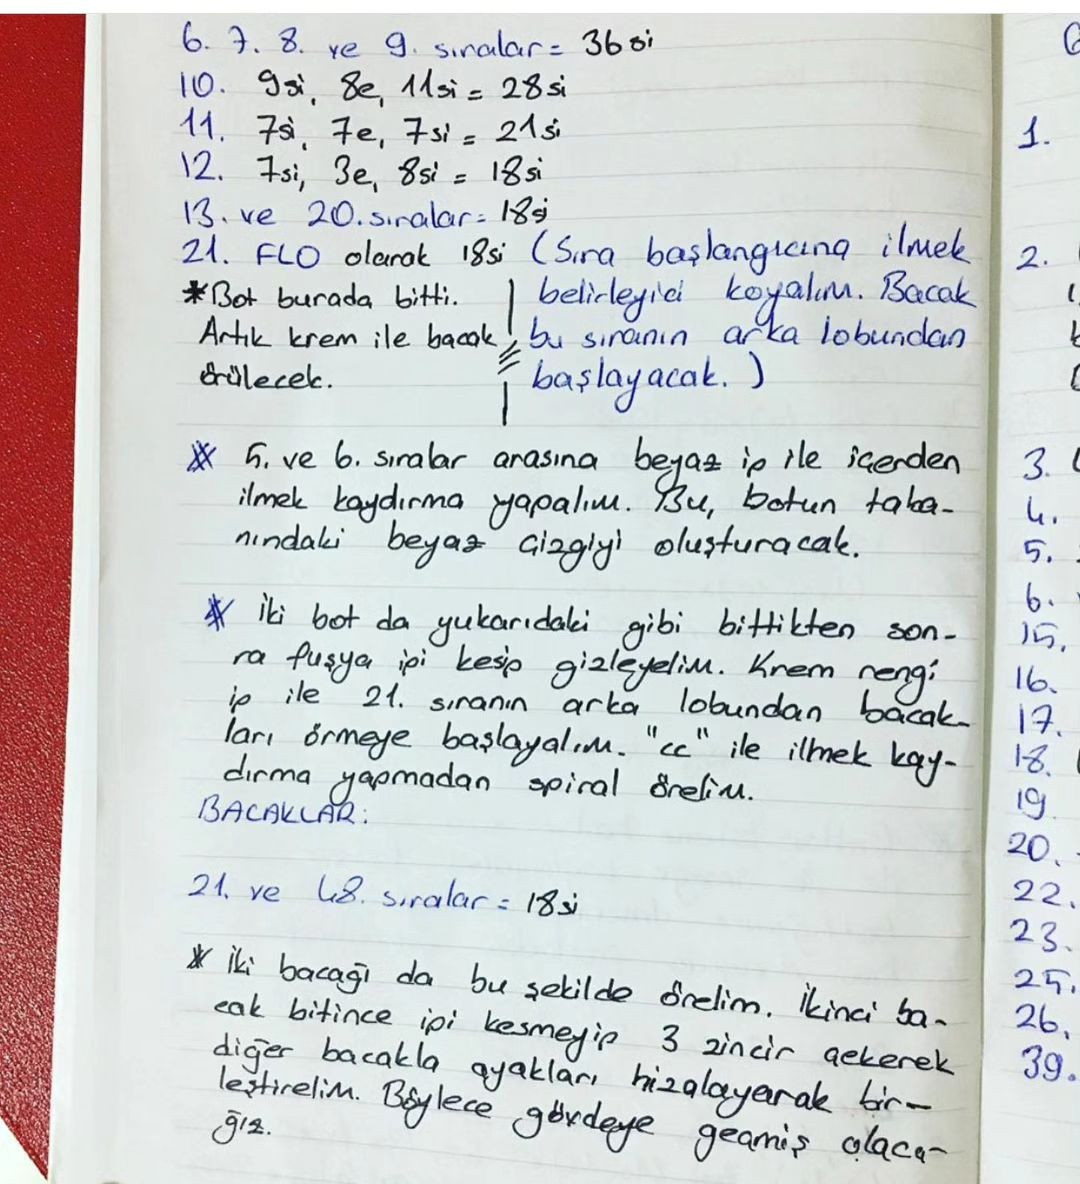 6. 7. 8. ve 9. sıralar = 36 si
10. 9si, 8e, 11si = 28si
11. 7si, 7e, 7si = 21si
12. 7si, 3e, 8si = 18si
13. ve 20. sıralar = 18si
21. FLO olarak 18si (Sıra başlangıcına ilmek
belirleyici koyalım. Bacak
bu sıranın arka lobundan
başlayacak.)
*Bot burada bitti.
Artık krem ile bacak
örülecek.
* 5. ve 6. sıralar arasına beyaz ip ile içerden
ilmek kaydırma yapalım. Bu, botun taba-
nındaki beyaz çizgiyi oluşturacak.
* İki bot da yukarıdaki gibi bittikten son-
ra fuşya ipi kesip gizleyelim. Krem rengi
ip ile 21. sıranın arka lobundan bacak-
ları örmeye başlayalım. "cc" ile ilmek kay-
dırma yapmadan spiral örelim.
BACAKLAR:
21. ve 48. sıralar = 18si
* İki bacağı da bu şekilde örelim. İkinci ba-
cak bitince ipi kesmeyip 3 zincir çekerek
diğer bacakla ayakları hizalayarak bir-
leştirelim. Böylece gövdeye geçmiş olaca-
ğız.
1.
2.
3.
4.
5.
6.
15.
16.
17.
18.
19.
20.
22.
23.
25.
26.
39.